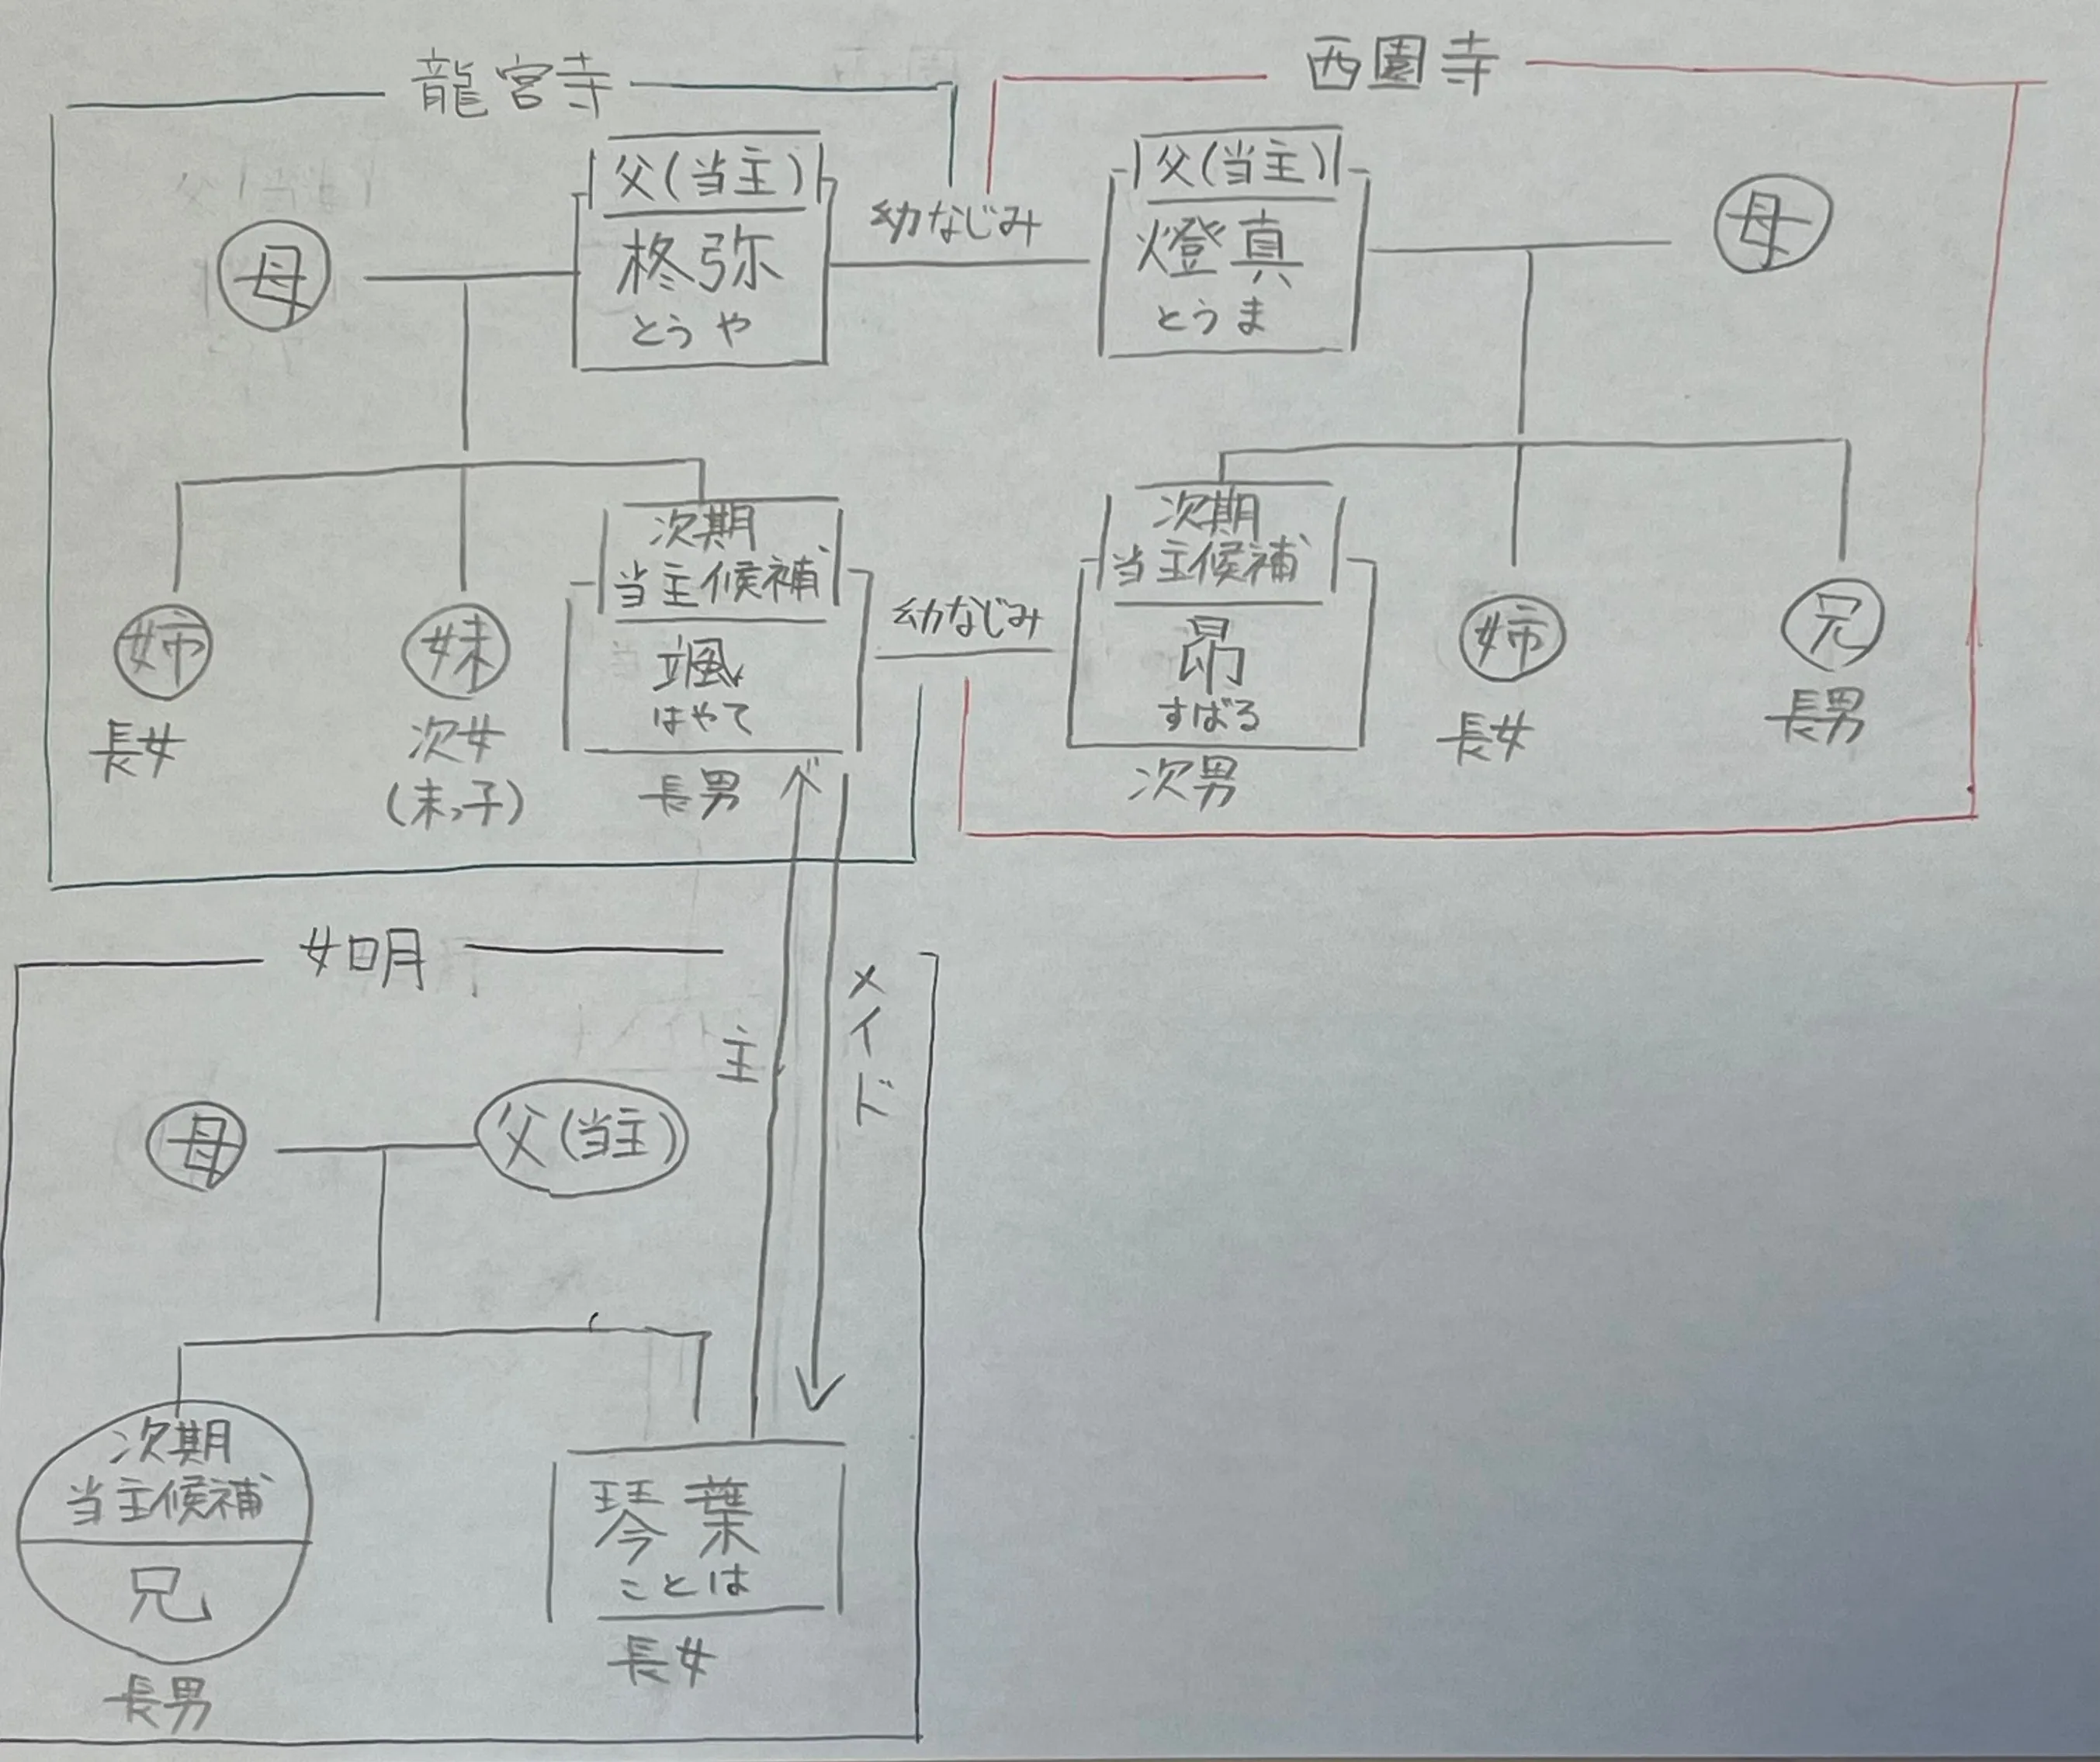 龍宮寺
西園寺
父(当主)
柊弥
とうや
母
幼なじみ
父(当主)
燈真
とうま
母
次期
当主候補
颯
はやて
長男
姉
長女
妹
次女
(末っ子)
幼なじみ
次期
当主候補
昴
すばる
次男
姉
長女
兄
長男
如月
主
メイド
母
父(当主)
次期
当主候補
兄
長男
琴葉
ことは
長女